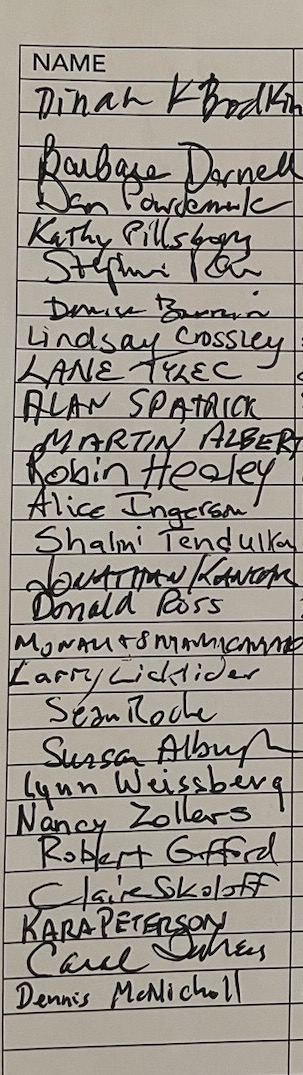 NAME
Dinah K Bodkin
Barbara Darnell
Dan
Kathy Pillsbury
Denise
Lindsay Crossley
LANE TYLEC
ALAN SPATRICK
MARTIN ALBERT
Robin Healey
Alice Ingerson
Shalmi Tendulka
JONATHAN KANTOR
Donald Ross
Larry Licklider
Sean Roche
Susan Albright
Lynn Weissberg
Nancy Zollers
Robert Gifford
Claire Skoloff
KARA PETERSON
Carol
Dennis McNicholl